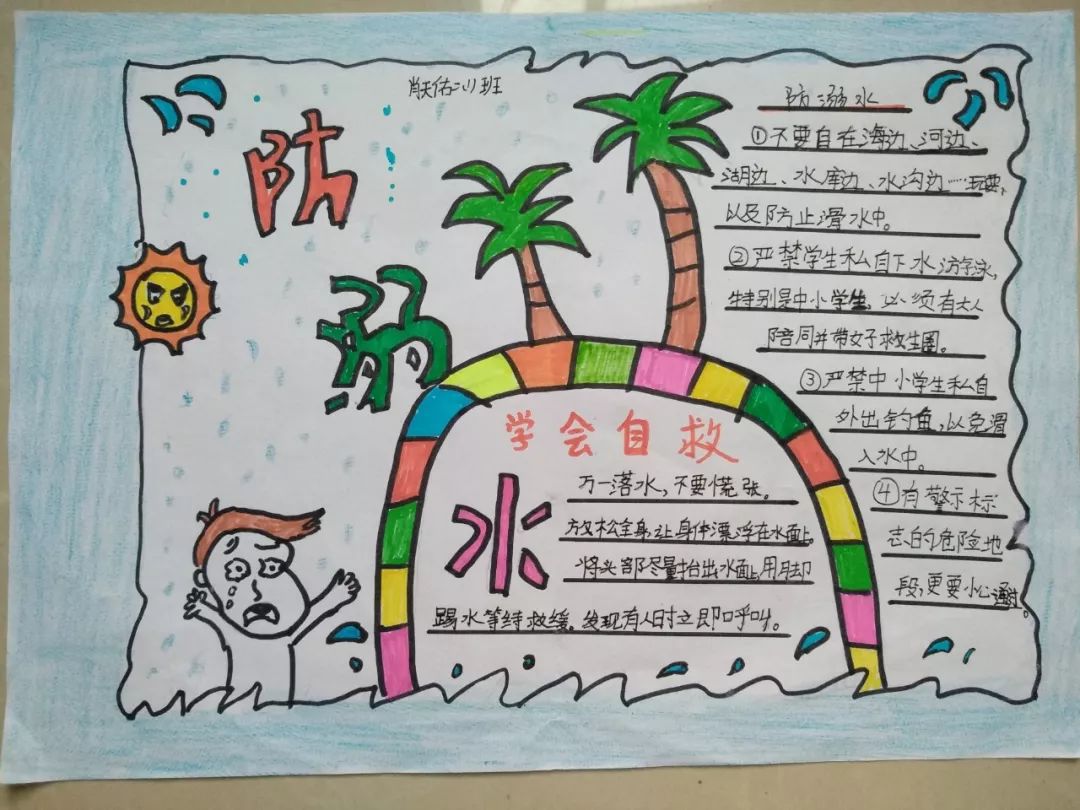 防
溺
水
防溺水
①不要自在海边、河边、
湖边、水库边、水沟边……玩耍,
以及防止滑水中。
②严禁学生私自下水游泳,
特别是中小学生,必须有大人
陪同并带好救生圈。
③严禁中小学生私自
外出钓鱼,以免滑
入水中。
④有警示标
志的危险地
段,更要小心
学会自救
万一落水,不要慌张。
放松全身,让身体漂浮在水面上。
将头部尽量抬出水面,用脚
踢水等待救缓。发现有人时立即呼叫。